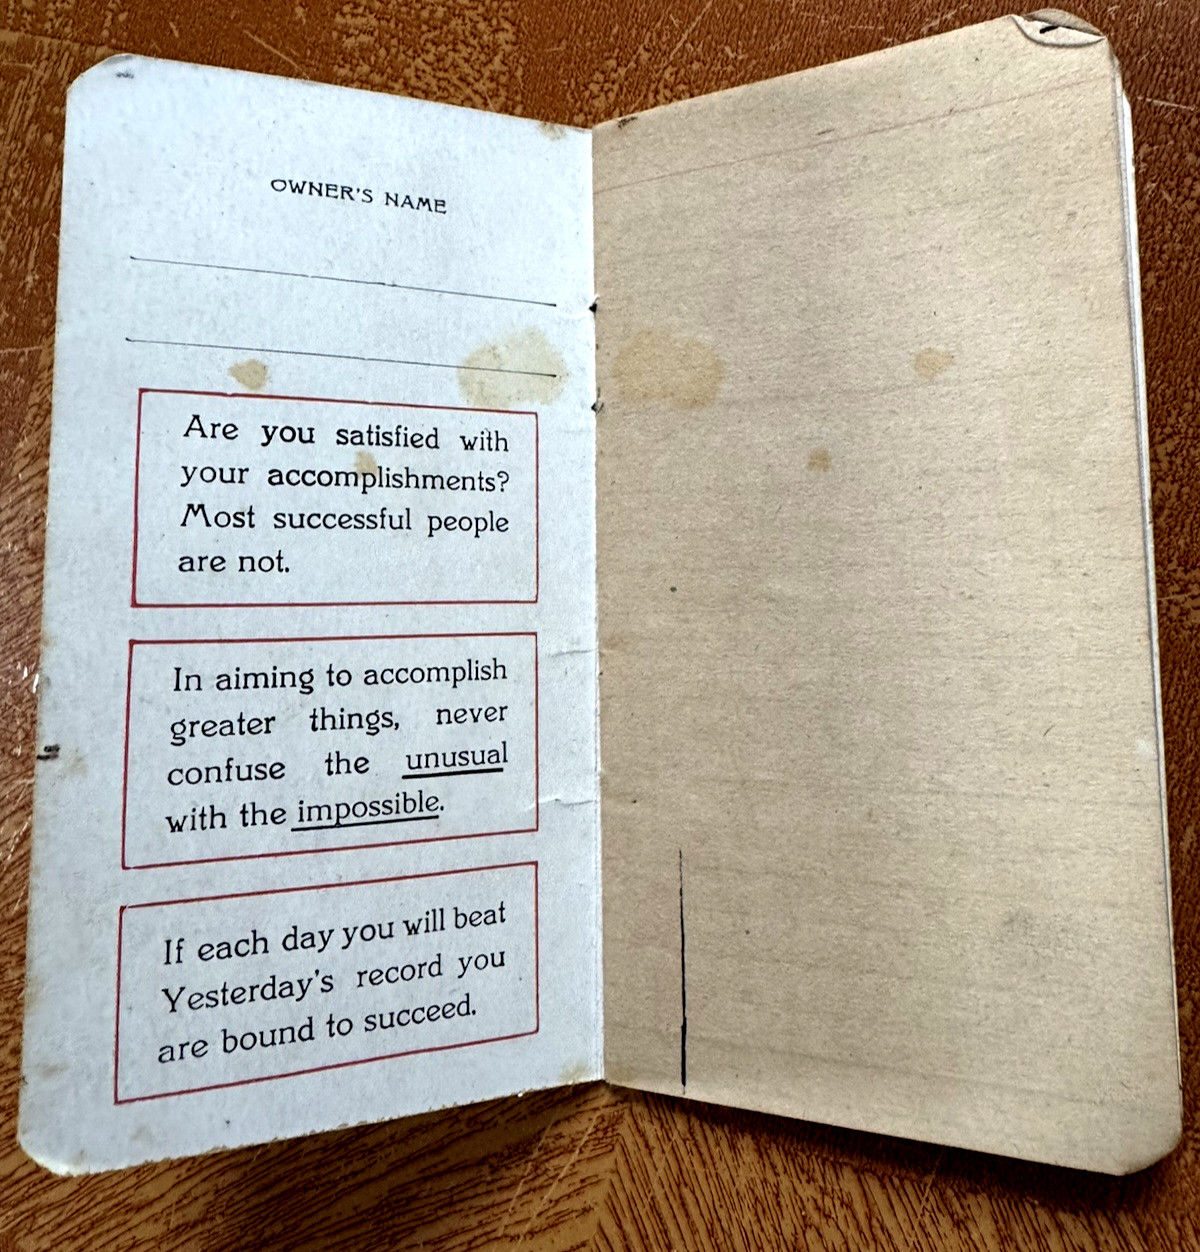 OWNER'S NAME
Are you satisfied with
your accomplishments?
Most successful people
are not.
In aiming to accomplish
greater things, never
confuse the unusual
with the impossible.
If each day you will beat
Yesterday's record you
are bound to succeed.